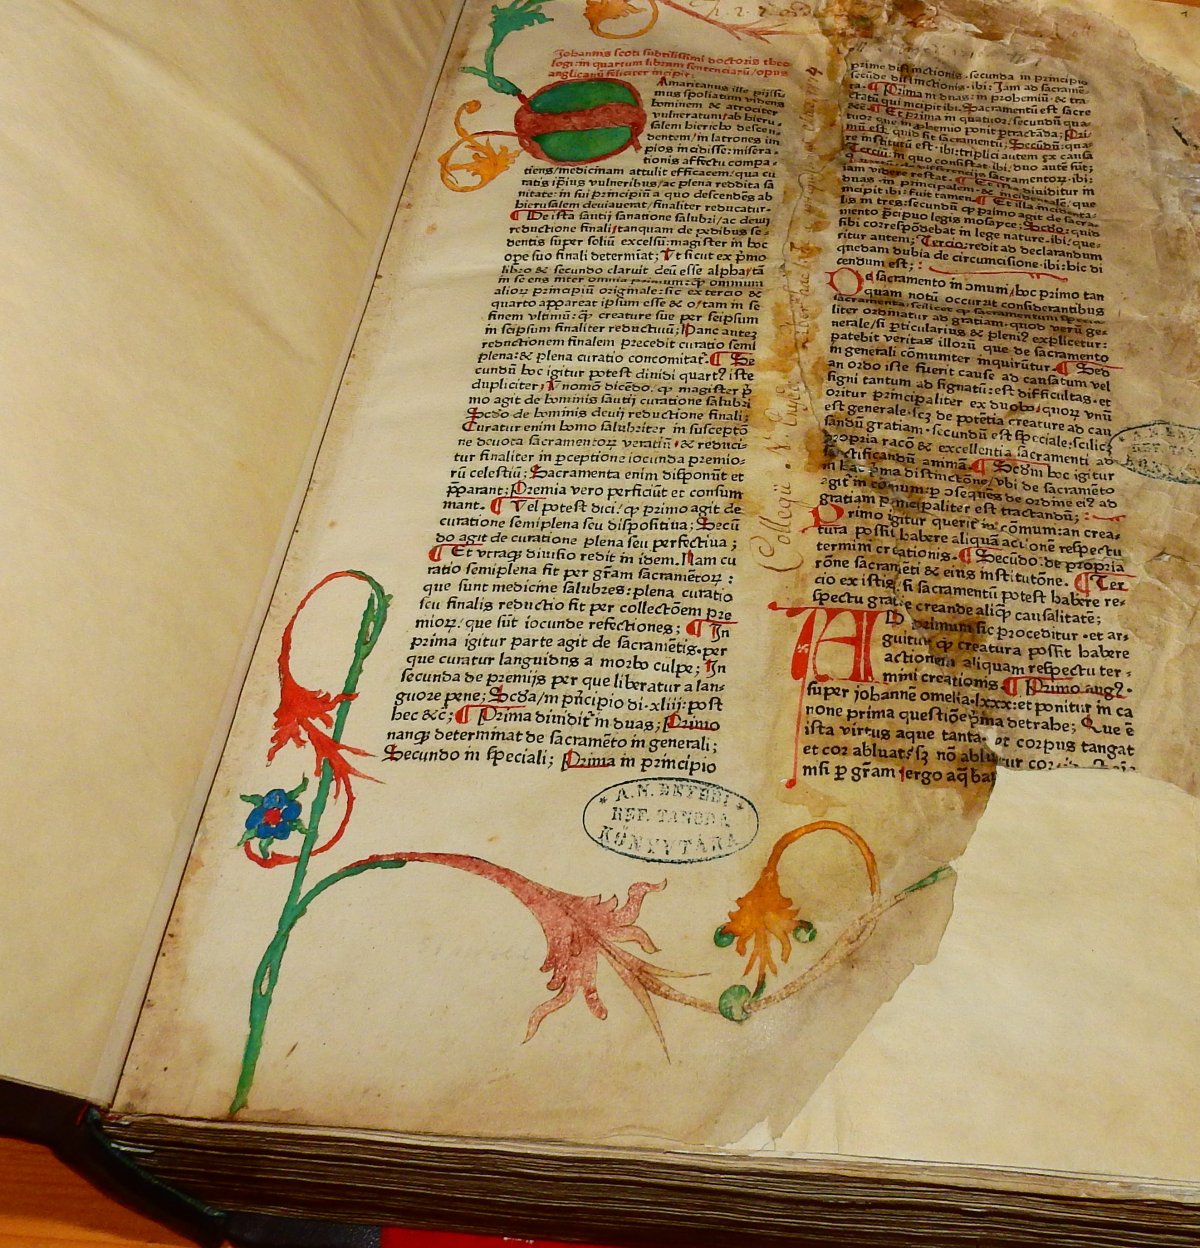 Johannis scoti subtilissimi doctoris theo
logi: in quartum librum sententiarũ / opus
anglicanũ feliciter incipit:
Amaritanus ille pijssi
mus spoliatum videns
hominem & atrociter
vulneratum / ab hieru-
salem hiericho descen-
dentem / in latrones in
pios incidisse: misera-
tionis affectu compa-
tiens / medicinam attulit efficacem / qua cu
ratis ip̃ius vulneribus / ac plena reddita sã
nitate: in sui principiũ a quo descendẽs ab
hierusalem deviaverat / finaliter reducatur.
¶ De ista sautij sanatione salubri / ac devij
reductione finali / tanquam de pedibus se-
dentis super soliũ excelsũ: magister in hoc
ope suo finali determĩat; Vt sicut ex p̃mo
libro & secundo claruit deũ esse alpha / tã
in se ens inter omnia primum: qꝫ omnium
alioꝝ principiũ originale: sic ex tercio &
quarto appareat ipsum esse & o / tam in se
finem vltimũ: qꝫ creature sue per seipsum
in seipsum finaliter reductiuũ; Hanc autez
reductionem finalem precedit curatio semi
plena: & plena curatio concomitat᷑. ¶ Se
cundũ hoc igitur potest dividi quartꝰ iste
dupliciter; Vnomõ dicẽdo. qꝫ magister p̃
mo agit de hominis sautij curatione salubri
Scd̃o de hominis devij reductione finali;
Curatur enim homo salubriter in susceptõ
ne devota sacramentoꝝ veratiũ & reduci-
tur finaliter in p̱ceptione iocunda premio-
rũ celestiũ; Sacramenta enim disponũt et
p̱parant; Premia vero perficiũt et consum
mant. ¶ Vel potest dici / qꝫ primo agit de
curatione semiplena seu dispositiva; Secũ
do agit de curatione plena seu perfectiva;
¶ Et vtraqꝫ divisio redit in idem. Nam cu
ratio semiplena fit per gr̃am sacramẽtoꝝ:
que sunt medicine salubres: plena curatio
seu finalis reductio fit per collectõem pre
mioꝝ / que sũt iocunde refectiones; ¶ In
prima igitur parte agit de sacramẽtis. per
que curatur languidus a morbo culpe; In
secunda de premijs per que liberatur a lan-
guore pene; Scd̃a / in p̃ncipio di. xliij: post
hec &c̃; ¶ Prima dividit᷑ in duas; Primo
nanqꝫ determinat de sacramẽto in generali;
Secundo in speciali; Prima in principio
A. N. ENYEDI
REF. TANODA
KÖNYVTÁRA
Collegii N. Enyed
prime distinctionis. secunda in principio
secũde distinctionis. ibi: Jam ad sacramẽ-
ta. ¶ Prima in duas: in prohemiũ. & tra-
ctatũ qui incipit ibi. Sacramentũ est sacre
&c. ¶ Et prima in quatuor / secundũ qua-
tuor que in p̱hemio ponit p̱tractãda; Pri-
mũ est. quid sit sacramentũ; Secũdũ: qua-
re institutũ est. ibi: triplici autem ex causa
Tertiũ: in quo consistat. ibi / duo autẽ sũt;
iam videre restat. ¶ Et illa dividitur in
duas. in principalem. & incidentalẽ / que
incipit ibi: fuit tamen. ¶ Et illa incidenta-
lis in tres: secundũ qꝫ primo agit de sacra-
mento p̃cipuo legis mosayce; Scd̃o: quid
sibi correspõdebat in lege nature. ibi: que-
ritur autem; Tercio: redit ad declarandum
quedam dubia de circumcisione. ibi: hic di
cendum est;
De sacramento in ꝯmuni / hoc primo tan
quam notũ occurrit considerantibus
sacramenta. scilicet qꝫ sacramentum specia-
liter ordinatur ad gratiam. quod verũ ge-
nerale / si p̱ticularius & pleniꝰ explicetur:
patebit veritas illorũ que de sacramento
in generali cõmuniter inquirũtur. ¶ Sed
an ordo iste fuerit cause ad causatum vel
signi tantum ad signatũ: est difficultas. et
oritur principaliter ex duobꝰ / quoꝝ vnũ
est generale. scꝫ de potẽtia creature ad cau
sandũ gratiam. secundũ est speciale: scilicꝫ
propria racõ & excellentia sacramenti ad
sanctificandũ animã. ¶ Scd̃m hoc igitur
in hac p̃ma distinctõne / vbi de sacramẽto
agit᷑ in cõmuni: p̱ ꝯsequẽs de ordĩe eiꝰ ad
gratiam principaliter est tractandũ;
Primo igitur querit᷑ in cõmum: an crea-
tura possit habere aliquã actionẽ respectu
termini creationis. ¶ Secũdo. de propria
rõne sacramẽti & eius institutõne. ¶ Ter
cio ex istis. si sacramentũ potest habere re-
spectu gratie creande aliqꝫ causalitatẽ;
AD primum sic proceditur. et ar-
guitur qꝫ creatura possit habere
actionem aliquam respectu ter-
mini creationis ¶ Primo augꝰ.
super johannẽ omelia. lxxx: et ponitur in ca
none prima questiõe p̃ma detrahe; Que ẽ
ista virtus aque tanta vt corpus tangat
et cor abluat: sꝫ nõ abluitur cor
nisi p̱ gr̃am / ergo aq̃ ha